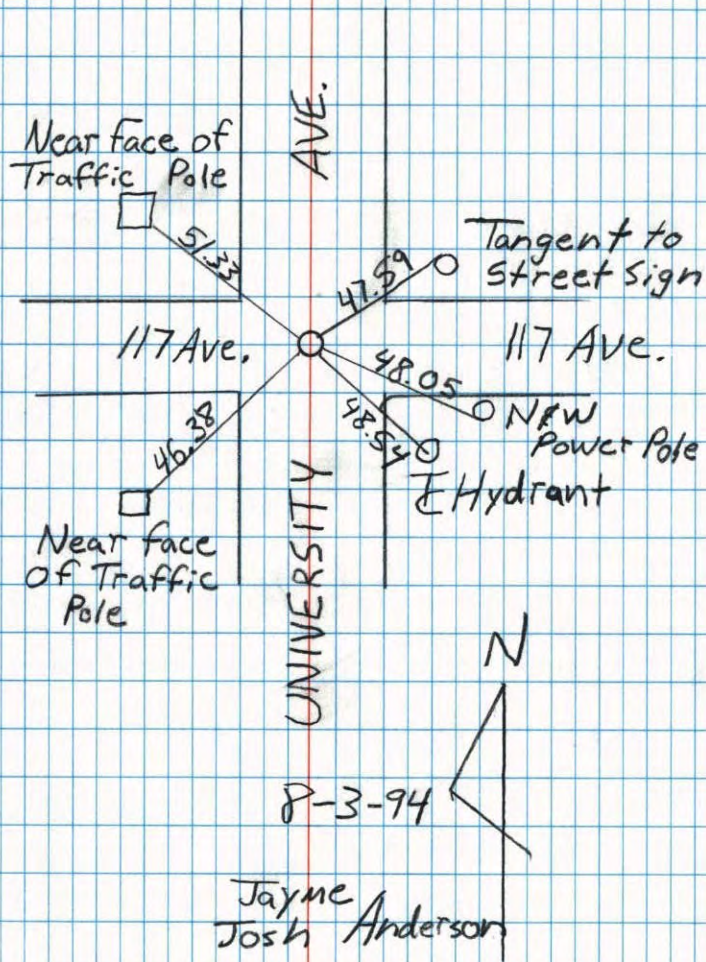 AVE.
Near face of
Traffic Pole
51.33
47.59
Tangent to
Street Sign
117 Ave.
117 Ave.
48.05
N/W
Power Pole
48.54
46.38
℄ Hydrant
Near face
Of Traffic
Pole
UNIVERSITY
N
8-3-94
Jayme
Josh Anderson